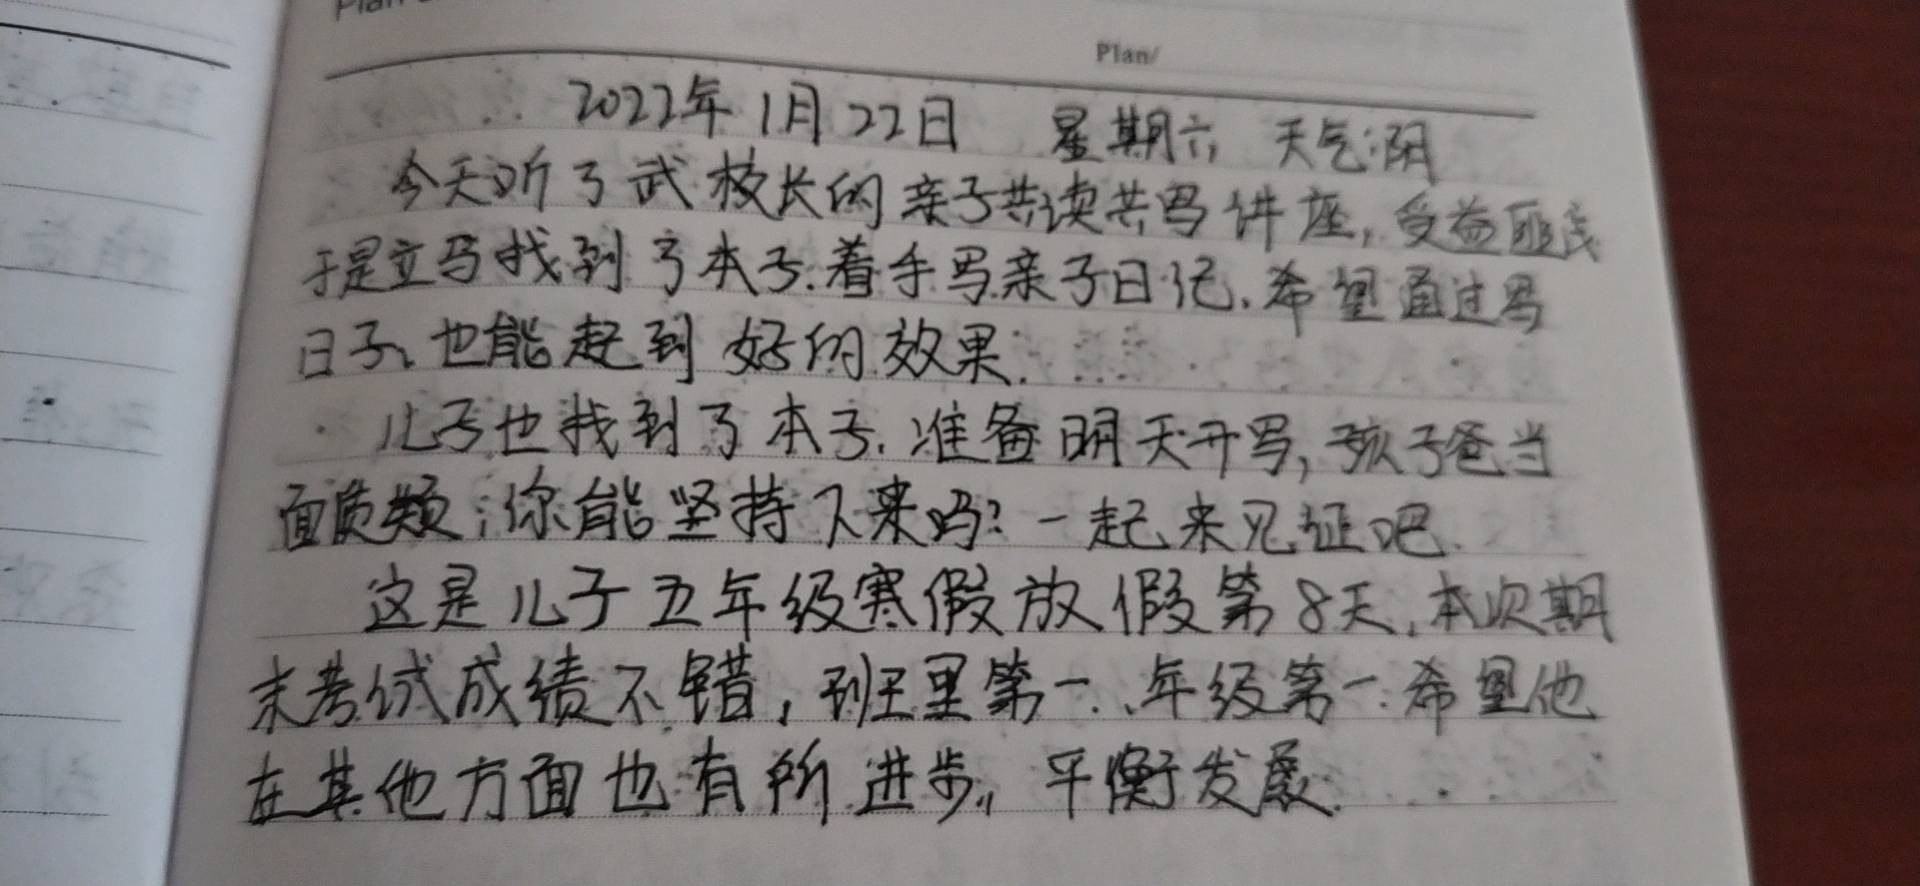 Plan
Plan/
2022年1月22日 星期六 天气:阴
今天听了武校长的亲子共读共写讲座,受益匪浅
于是立马找到了本子.着手写亲子日记.希望通过写
日子、也能起到好的效果.
儿子也找到了本子.准备明天开写,孩子爸当
面质疑:你能坚持下来吗?一起来见证吧.
这是儿子五年级寒假放假第8天,本次期
末考试成绩不错,班里第一、年级第一.希望他
在其他方面也有所进步,平衡发展.